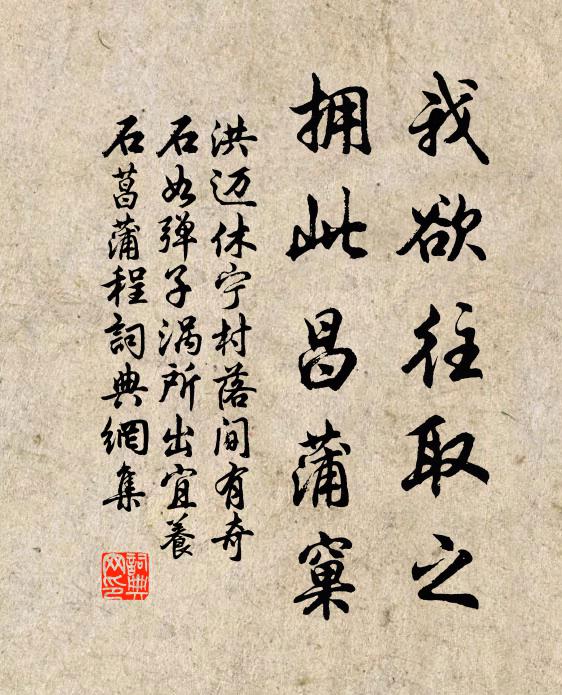 我欲往取之
拥此昌蒲窠
洪迈休宁村落间有奇
石如弹子涡所出宜養
石菖蒲程詞典網集
詞典
网印